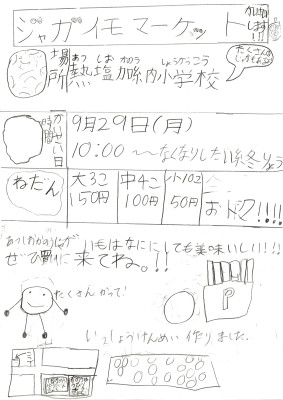 ジャガイモマーケット
かい当
します
!!!
場所 熱塩加納小学校
あつ しお かのう しょうがっこう
たくさんの
じゃがもあるよ
かいさい日
時間
9月29日(月)
10:00～～なくなりしだい終りょう
ねだん
大3こ
150円
中4こ
100円
小10こ
50円
おトク!!!!
いもはなににしても美味しい!!!
ぜひ買いに来てね。!!
たくさんかって!
P
いっしょうけんめい作りました。